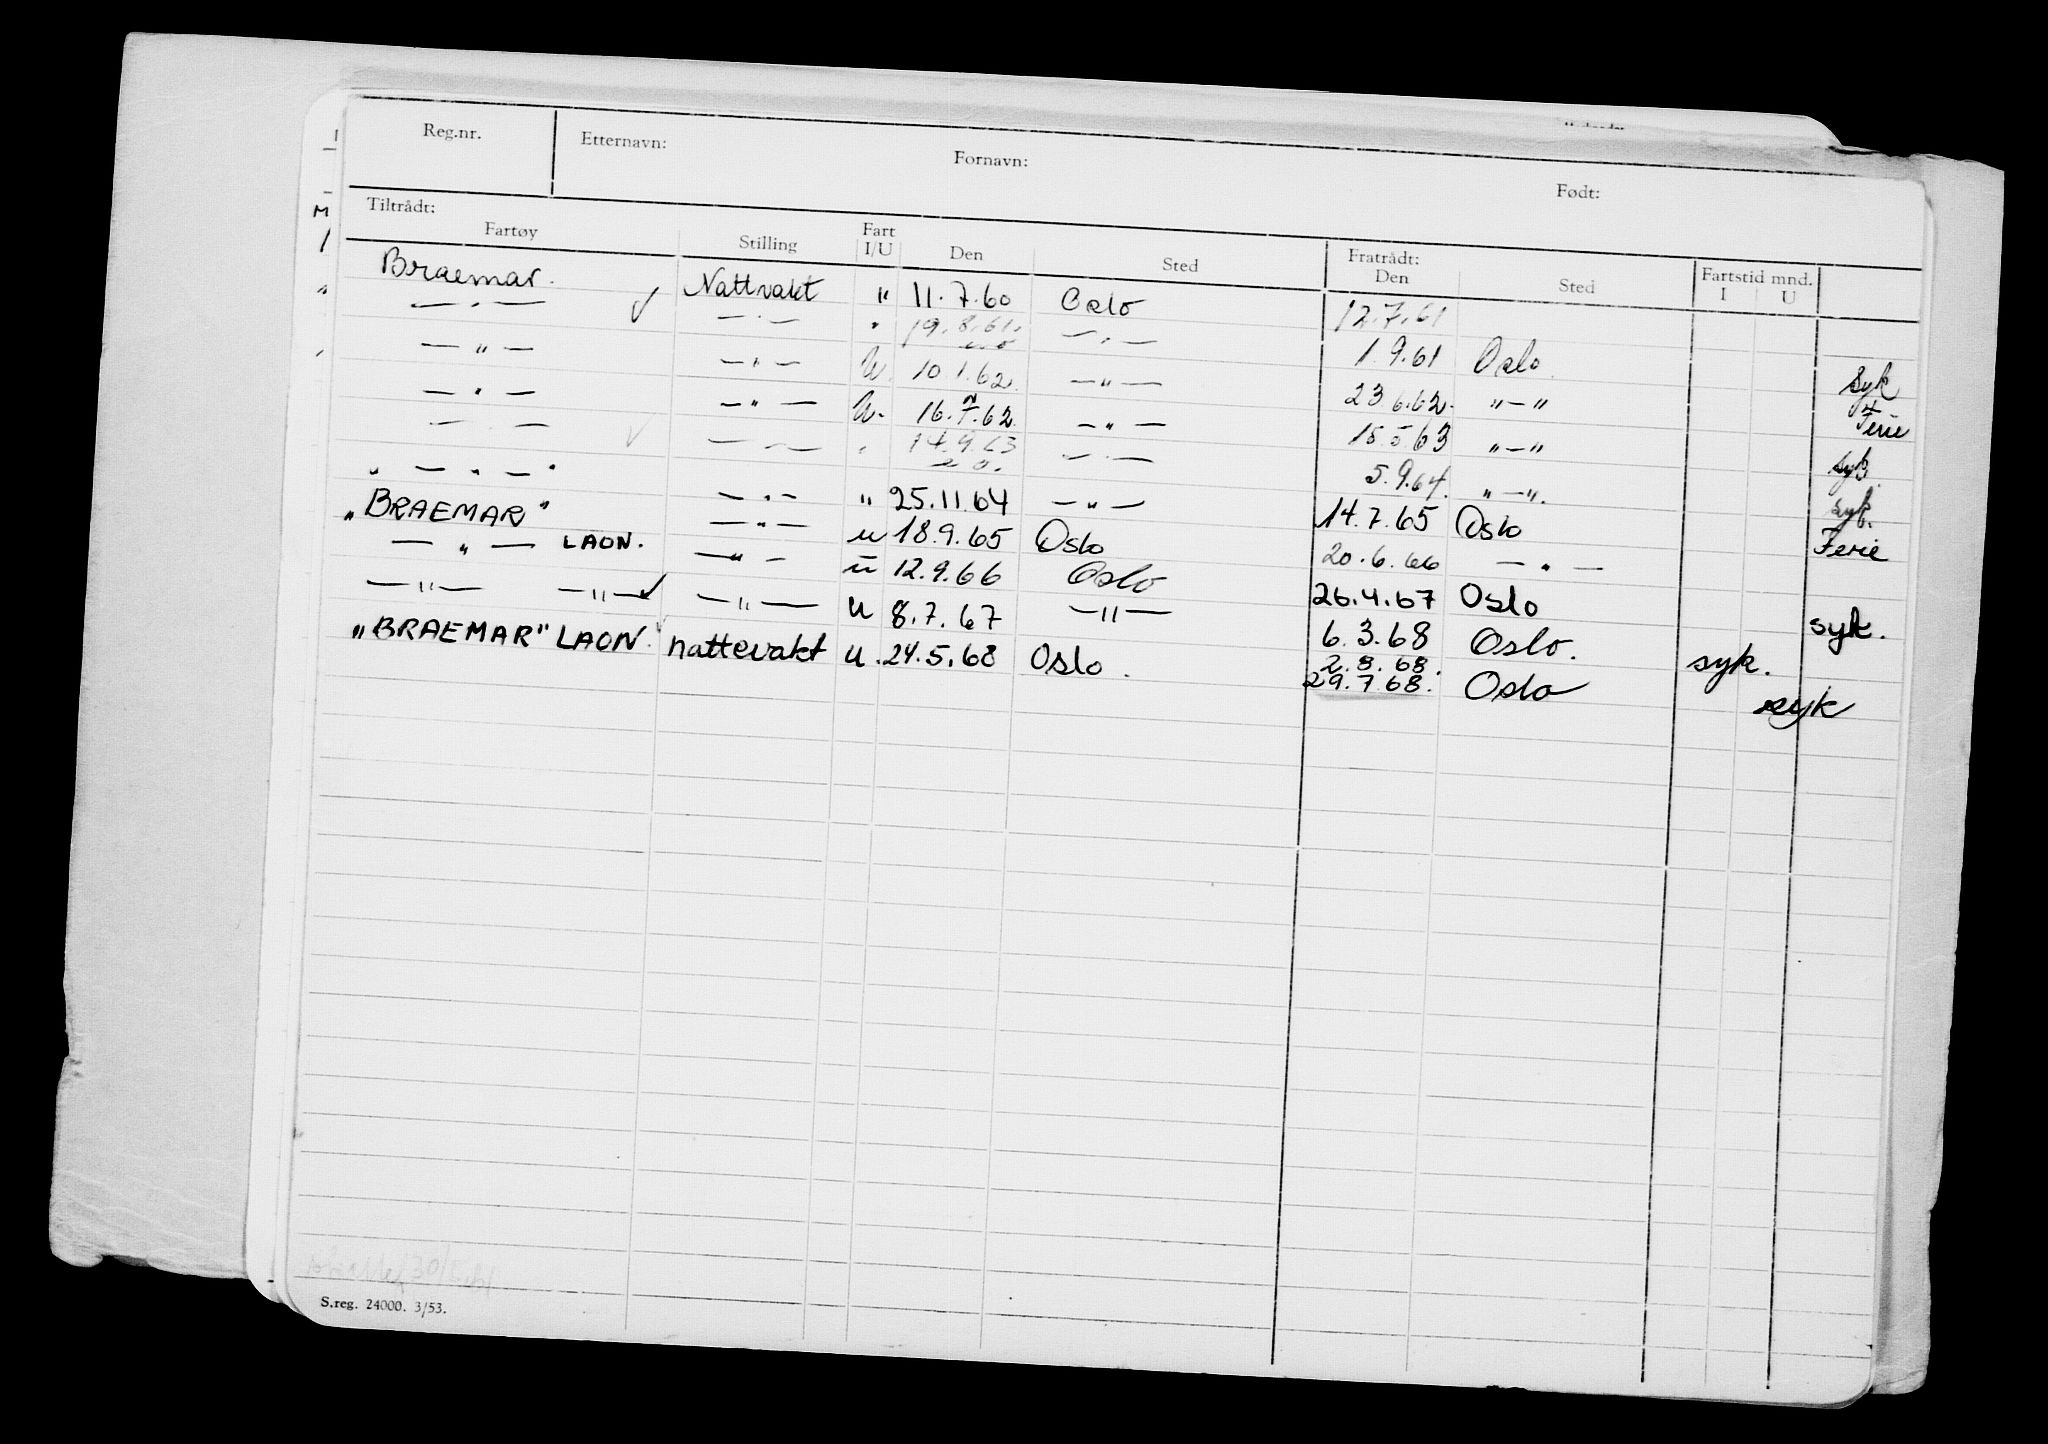 Reg.nr. Etternavn: Fornavn: Født:
Tiltrådt: Fratrådt:
Fartøy Stilling Fart I/U Den Sted Den Sted Fartstid mnd. I U
Braemar. Nattvakt " 11.7.60 Oslo 12.7.61
— " — — " — " 19.8.61. — " — 1.9.61 Oslo. syk
— " — — " — U. 10.1.62. — " — 23.6.62. " — " Ferie
— " — — " — U. 16.7.62. — " — 15.5.63 " — " syk.
— " — — " — " 14.9.63 — " — 5.9.64. " — ". syk.
" — " — " — " — " 25.11.64 — " — 14.7.65 Oslo Ferie
"BRAEMAR" — " — u 18.9.65 Oslo 20.6.66 — " —
— " — LAON. — " — u 12.9.66 Oslo 26.4.67 Oslo syk.
— " — — " — — " — u 8.7.67 — " — 6.3.68 Oslo. syk.
"BRAEMAR" LAON. nattevakt u. 24.5.68 Oslo. 2.8.68.
29.7.68. Oslo syk
S.reg. 24000. 3/53.